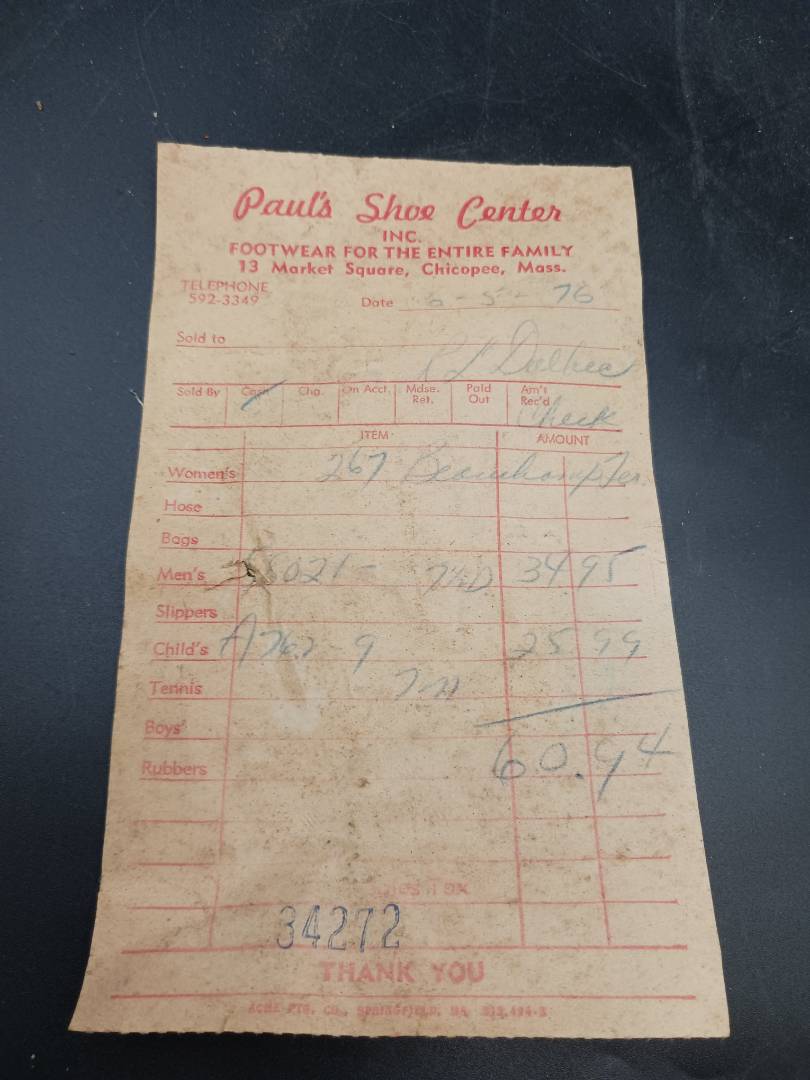 Paul's Shoe Center
INC.
FOOTWEAR FOR THE ENTIRE FAMILY
13 Market Square, Chicopee, Mass.
TELEPHONE
592-3349
Date 6-5-76
Sold to
Sold By Cash Chg. On Acct. Mdse. Ret. Paid Out Am't Rec'd
Check
ITEM AMOUNT
Women's 267
Hose
Bags
Men's 8021- 7½D 34 95
Slippers
Child's A767-9 25 99
Tennis
Boys'
60.94
Rubbers
34272
THANK YOU
ACME PTG. CO., SPRINGFIELD, MA